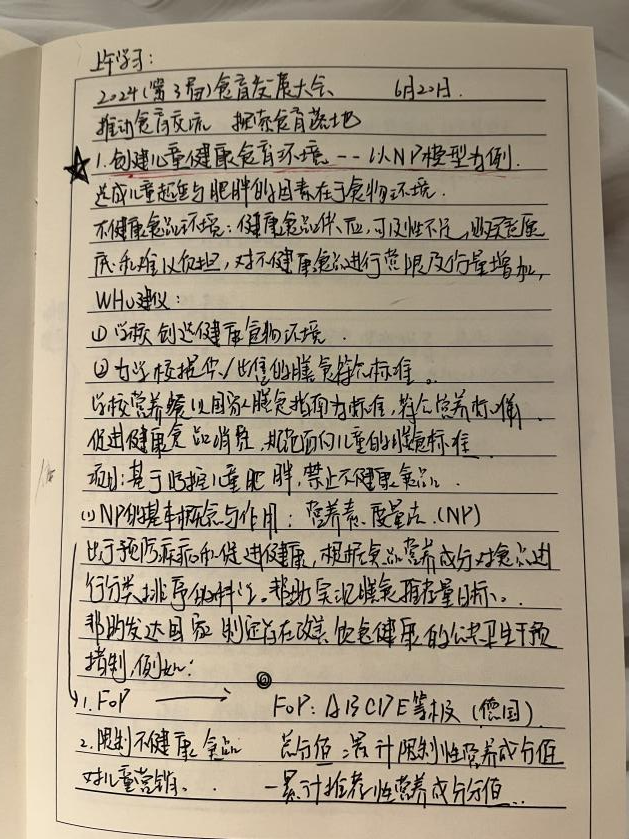 上午学习：
2024(第3届)食育发展大会 6月20日.
推动食育交流 探索食育落地
1.创建儿童健康食育环境--以NP模型为例.
造成儿童超重与肥胖的因素在于食物环境.
不健康食品环境：健康食品供应,可及性不足,
难以负担,对不健康食品进行 限 及 量增加,
WHO建议：
①学校创造健康食物环境.
②为学校提供/出售的膳食符合标准.
学校营养餐以国家膳食指南为标准,符合营养标准.
促进健康食品消费, 面向儿童的膳食标准
项目:基于防控儿童肥胖,禁止不健康食品.
(1)NP的基本概念与作用：营养素度量法.(NP)
出于预防疾病和促进健康,根据食品营养成分对食品进
行分类排序的科学.帮助实现膳食推荐量目标.
帮助发达国家制定旨在改善饮食健康的公共卫生干预
措制,例如:
1.FOP → FOP: ABCDE等级(德国)
2.限制不健康食品 总分值:累计限制性营养成分值
对儿童营销. -累计推荐性营养成分分值